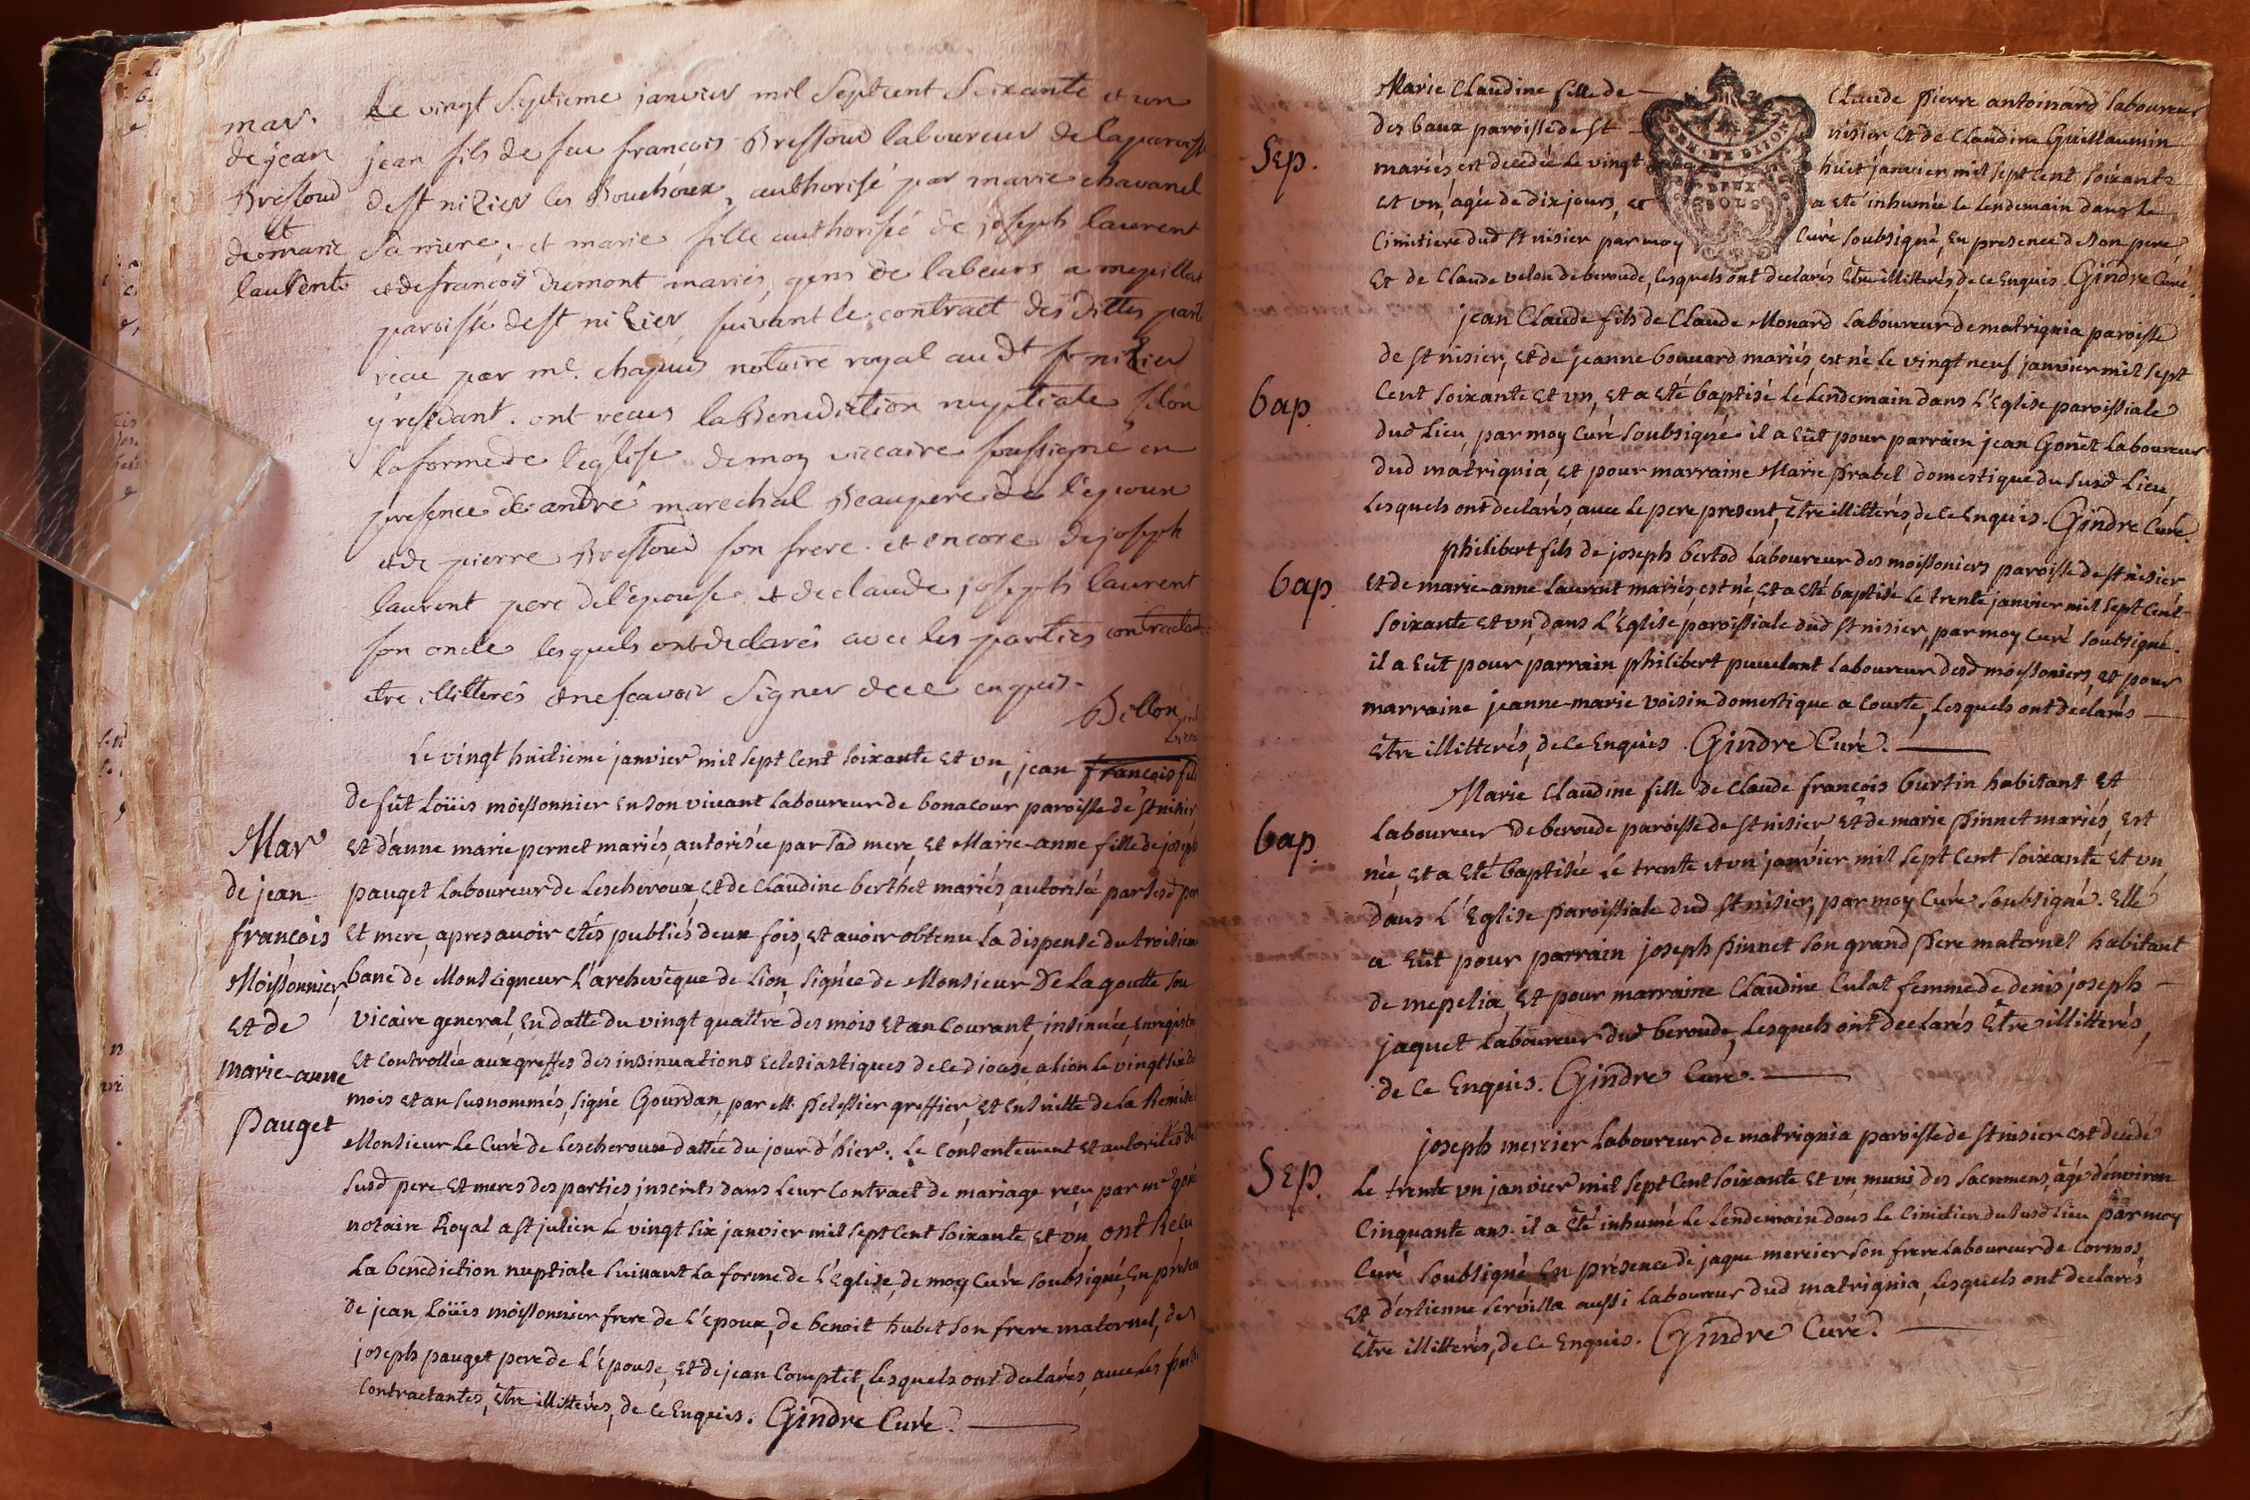 mar.
de jean
Bressoud
et
de marie
laurent
Le vingt Septieme janvier mil Septcent Soixante et un
jean fils de feu françois Bressoud laboureur de la paroisse
de st nizier les Bouchoux, authorisé par marie chavanel
sa mere, et marie fille authorisée de joseph laurent
et de françois dumont mariés, gens de labeurs a mepillat
paroisse de st nizier suivant le contract des dittes part
reçu par me. chapuis notaire royal au dt st nizier
y residant. ont reçus la Benediction nuptiale selon
la forme de l'eglise de moy vicaire soussigné en
presence de andré marechal Beaupere de l'epoux
et de pierre Bressoud son frere. et encore de joseph
laurent pere de l'epouse et de claude joseph laurent
son oncle lesquels ont declarés avec les parties contractant
etre illiterés et ne scavoir signer de ce enquis.
Billon
Mar
de jean
françois
Moissonnier,
Et de
marie-anne
Pauget
Le vingt huitieme janvier mil sept Cent soixante Et vn, jean françois fils
de fût Loüis moissonnier En son vivant Laboureur de bonacour paroisse de st nisier
Et d'anne marie pernet mariés, autorisée par sad mere, Et Marie-anne fille de joseph
pauget Laboureur de Lescheroux, Et de Claudine berthet mariés, autorisée par sesd per
Et mere, apres avoir Etés publiés deux fois, Et avoir obtenu La dispense du troisiem
banc de Monseigneur L'archevêque de Lion, signée de Monsieur De La goutte son
vicaire general, En datte du vingt quattre des mois Et an Courant, insinuée, Enregistr
Et Controllée aux greffes des insinuations Eclesiastiques de ce diocese a lion le vingt six de
mois Et an susnommés, signé Gourdan, par Mr Pelessier greffier, Et Ensuitte de La Remise
Monsieur Le Curé de Lescheroux dattée du jour d'hier. Le Consentement Et autorités de
susd pere Et meres des parties inscrits dans Leur Contract de mariage reçu par me
notaire Royal a st julien Le vingt six janvier mil sept Cent soixante Et vn, ont Reçu
La benediction nuptiale suivant La forme de L'Eglise, de moy Curé soubsigné, En presen
de jean Loüis moissonnier frere de L'Epoux, de benoit hubet son frere maternel, de
joseph pauget pere de L'Epouse, Et de jean Comptet, Lesquels ont declarés, avec Les part
Contractantes, Etre illitterés, de ce Enquis. Gindre Curé.
Sep.
Marie Claudine fille de Claude Pierre antoinard Laboureur
des baux paroisse de st nisier Et de Claudine Guillaumin
mariés est decedée Le vingt huit janvier mil sept Cent soixante
Et vn, âgée de dix jours, Et a Eté inhumée Le Lendemain dans Le
Cimitiere dud st nisier par moy Curé soubsigné, En presence de son pere
Et de Claude velon de beroude, Lesquels ont declarés Etre illitterés, de ce Enquis. Gindre Curé.
GEN. DE DIJON
DEUX
SOLS
bap.
jean Claude fils de Claude Monard Laboureur de matrignia paroisse
de st nisier, Et de jeanne bouvard mariés, est né Le vingt neuf janvier mil sept
Cent soixante Et vn, Et a Eté baptisé Le Lendemain dans L'Eglise paroissiale
dud Lieu, par moy Curé soubsigné. il a Eût pour parrain jean Gonet Laboureur
dud matrignia, Et pour marraine Marie Prabel domestique du susd Lieu,
Lesquels ont declarés, avec Le pere present, Etre illitterés, de ce Enquis. Gindre Curé.
bap.
philibert fils de joseph bertod Laboureur des moissoniers paroisse de st nisier
Et de marie-anne Laurent mariés, est né, Et a Eté baptisé Le trente janvier mil sept Cent
soixante Et vn, dans L'Eglise paroissiale dud st nisier, par moy Curé soubsigné.
il a Eût pour parrain philibert puvelant Laboureur desd moissoniers, Et pour
marraine jeanne-marie voisin domestique a Courte, Lesquels ont declarés
Etre illitterés, de ce Enquis. Gindre Curé.
bap.
Marie Claudine fille de Claude françois burtin habitant Et
Laboureur de beroude paroisse de st nisier, Et de marie Pinnet mariés, Est
née, Et a Eté baptisée Le trente et un janvier mil sept Cent soixante Et vn
dans L'Eglise paroissiale dud st nisier, par moy Curé soubsigné. Elle
a Eût pour parrain joseph Pinnet son grand Pere maternel habitant
de mepelia, Et pour marraine Claudine Culat femme de denis joseph
jaquet Laboureur dud beroude, Lesquels ont declarés Etre illitterés,
de ce Enquis. Gindre Curé.
Sep.
joseph mercier Laboureur de matrignia paroisse de st nisier est decedé
Le trente vn janvier mil sept Cent soixante Et vn, muni des sacremens, âgé d'environ
Cinquante ans. il a Eté inhumé Le Lendemain dans Le Cimitier du susd Lieu par moy
Curé soubsigné, En présence de jaque mercier son frere Laboureur de Cormos,
Et d'estienne servilla aussi Laboureur dud matrignia, Lesquels ont declarés
Etre illitterés, de ce Enquis. Gindre Curé.